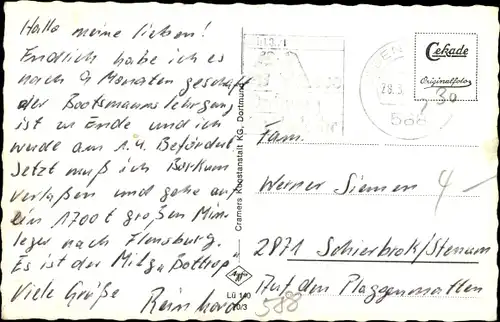 Hallo meine lieben!
Endlich habe ich es
nach 9 Monaten geschaft
der Bootsmannslehrgang
ist zu Ende und ich
wurde am 1.4. Befördert
Jetzt muß ich Borkum
verlaßen und gehe auf
ein 1700 t großen Min
leger nach Flensburg.
Es ist der "Bottrop"
Viele Grüße
Reinhard
Cramers Kunstanstalt KG, Dortmund
Agfa
Lü 140
10/3
588
28.3.
Cekade
Originalfoto
30
Fam.
Werner Siemen
4
2871 Schierbrok/Stenum
Auf den Plaggenmatten